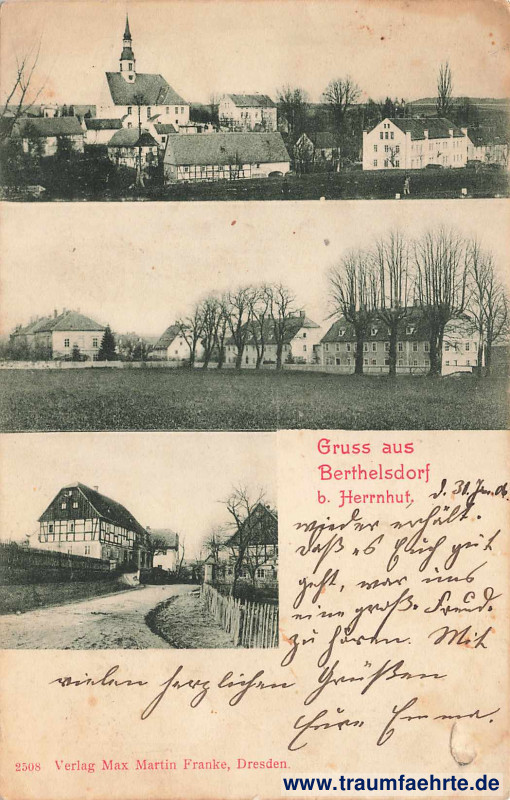 Gruss aus
Berthelsdorf
b. Herrnhut,
d. 31. Jan. 06.
wieder erhält.
Daß es Euch gut
geht, war uns
eine große Freude
zu hören. Mit
vielen herzlichen Grüßen
Eure Emma.
2508 Verlag Max Martin Franke, Dresden.
www.traumfaehrte.de